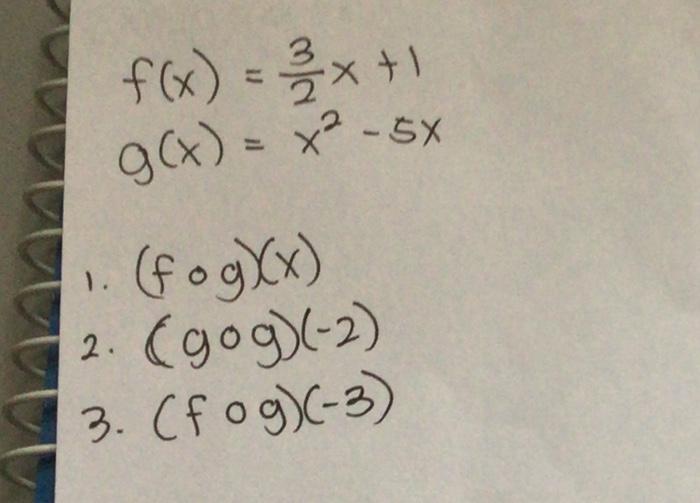 f(x) = 3/2 x + 1
g(x) = x² - 5x
1. (f ∘ g)(x)
2. (g ∘ g)(-2)
3. (f ∘ g)(-3)